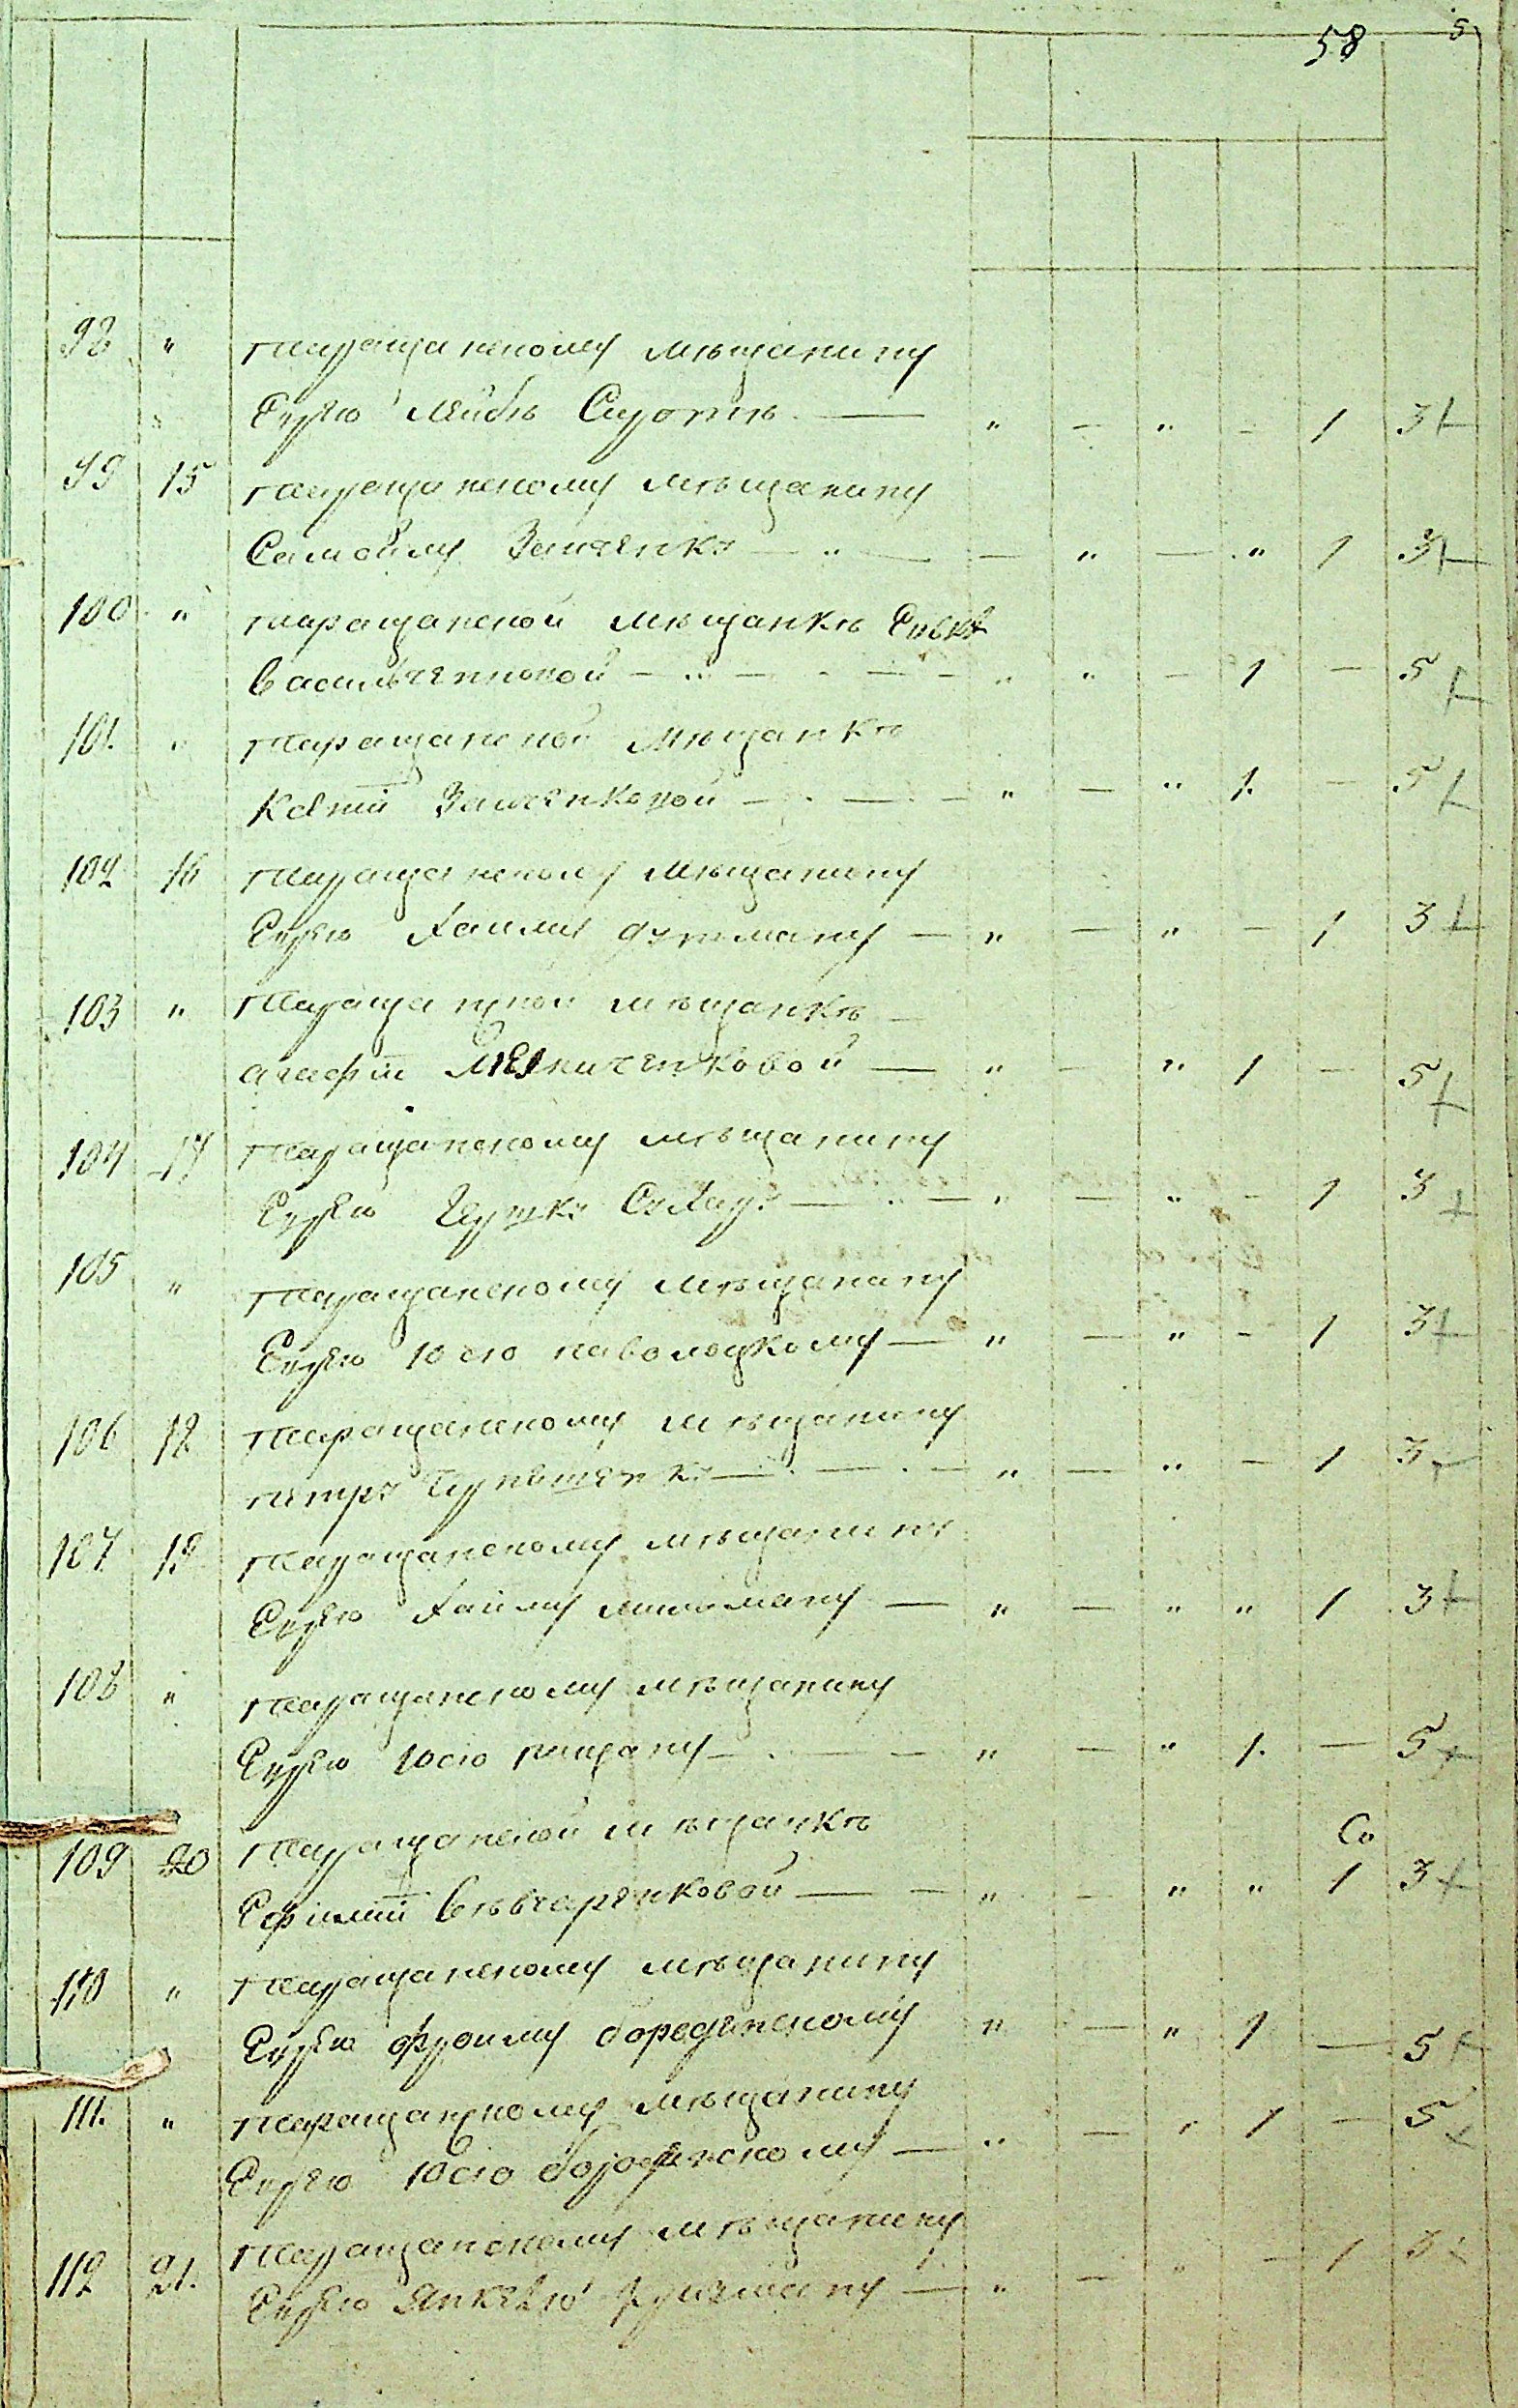 58
98 " таращанскому мѣщанину
Еврею Лейбѣ Сиротѣ — " — " — 1 3
99 15 таращанскому мѣщанину
Самойлу Заиченку — " — — " — " 1 3
100 " таращанской мѣщанкѣ
Васильченковой — " — " " — 1 — 5
101. " таращанской мѣщанкѣ
Ксеніи Заиченковой — " — " 1. — 5
102 16 таращанскому мѣщанину
Еврею Хаиму Гутману — " — " — 1 3
103 " таращанской мѣщанкѣ —
агафіи Мельниченковой — " — " 1 — 5
104 17 таращанскому мѣщанину
Еврею Гершку — " — " — 1 3
105 " таращанскому мѣщанину
Еврею Юсю паволоцкому — " — " — 1 3
106 18 таращанскому мѣщанину
петру — " — " — 1 3
107 19 таращанскому мѣщанину
Еврею Хаиму — " — " " 1 3
108 " таращанскому мѣщанину
Еврею Юсю — " — " 1. — 5
109 20 таращанской мѣщанкѣ
Ефиміи — " — " " 1 3
110 " таращанскому мѣщанину
Еврею Фроиму бородянскому " — " 1 — 5
111. " таращанскому мѣщанину
Еврею Юсю бородянскому — " — " 1 — 5
112 21. таращанскому мѣщанину
Еврею Янкелю — " — " — 1 3